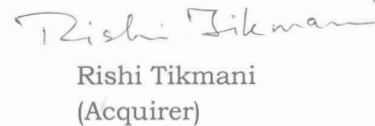 Rishi Tikmani
Rishi Tikmani
(Acquirer)